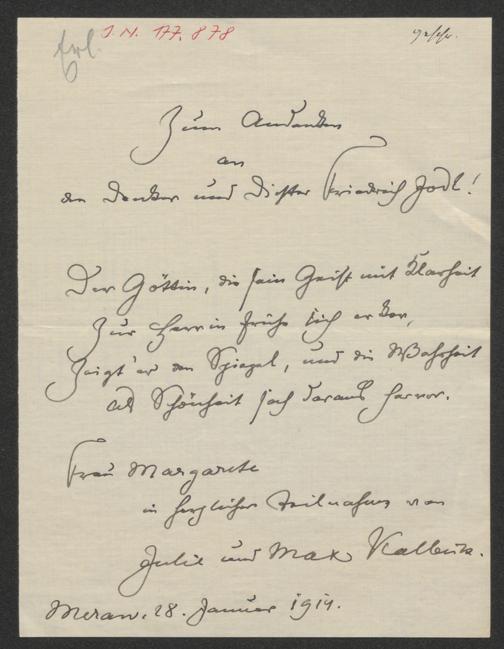 Erl.
I.N. 177.878
Zum Andenken
an
den Denker und Dichter Friedrich Jodl!
Der Göttin, die sein Geist mit Klarheit
Zur Herrin frühe sich erkor,
Zeigt' er den Spiegel, und die Wahrheit
als Schönheit sah daraus hervor.
Frau Margarete
in herzlicher Teilnahme von
Julie und Max Kalbeck.
Meran, 28. Januar 1914.